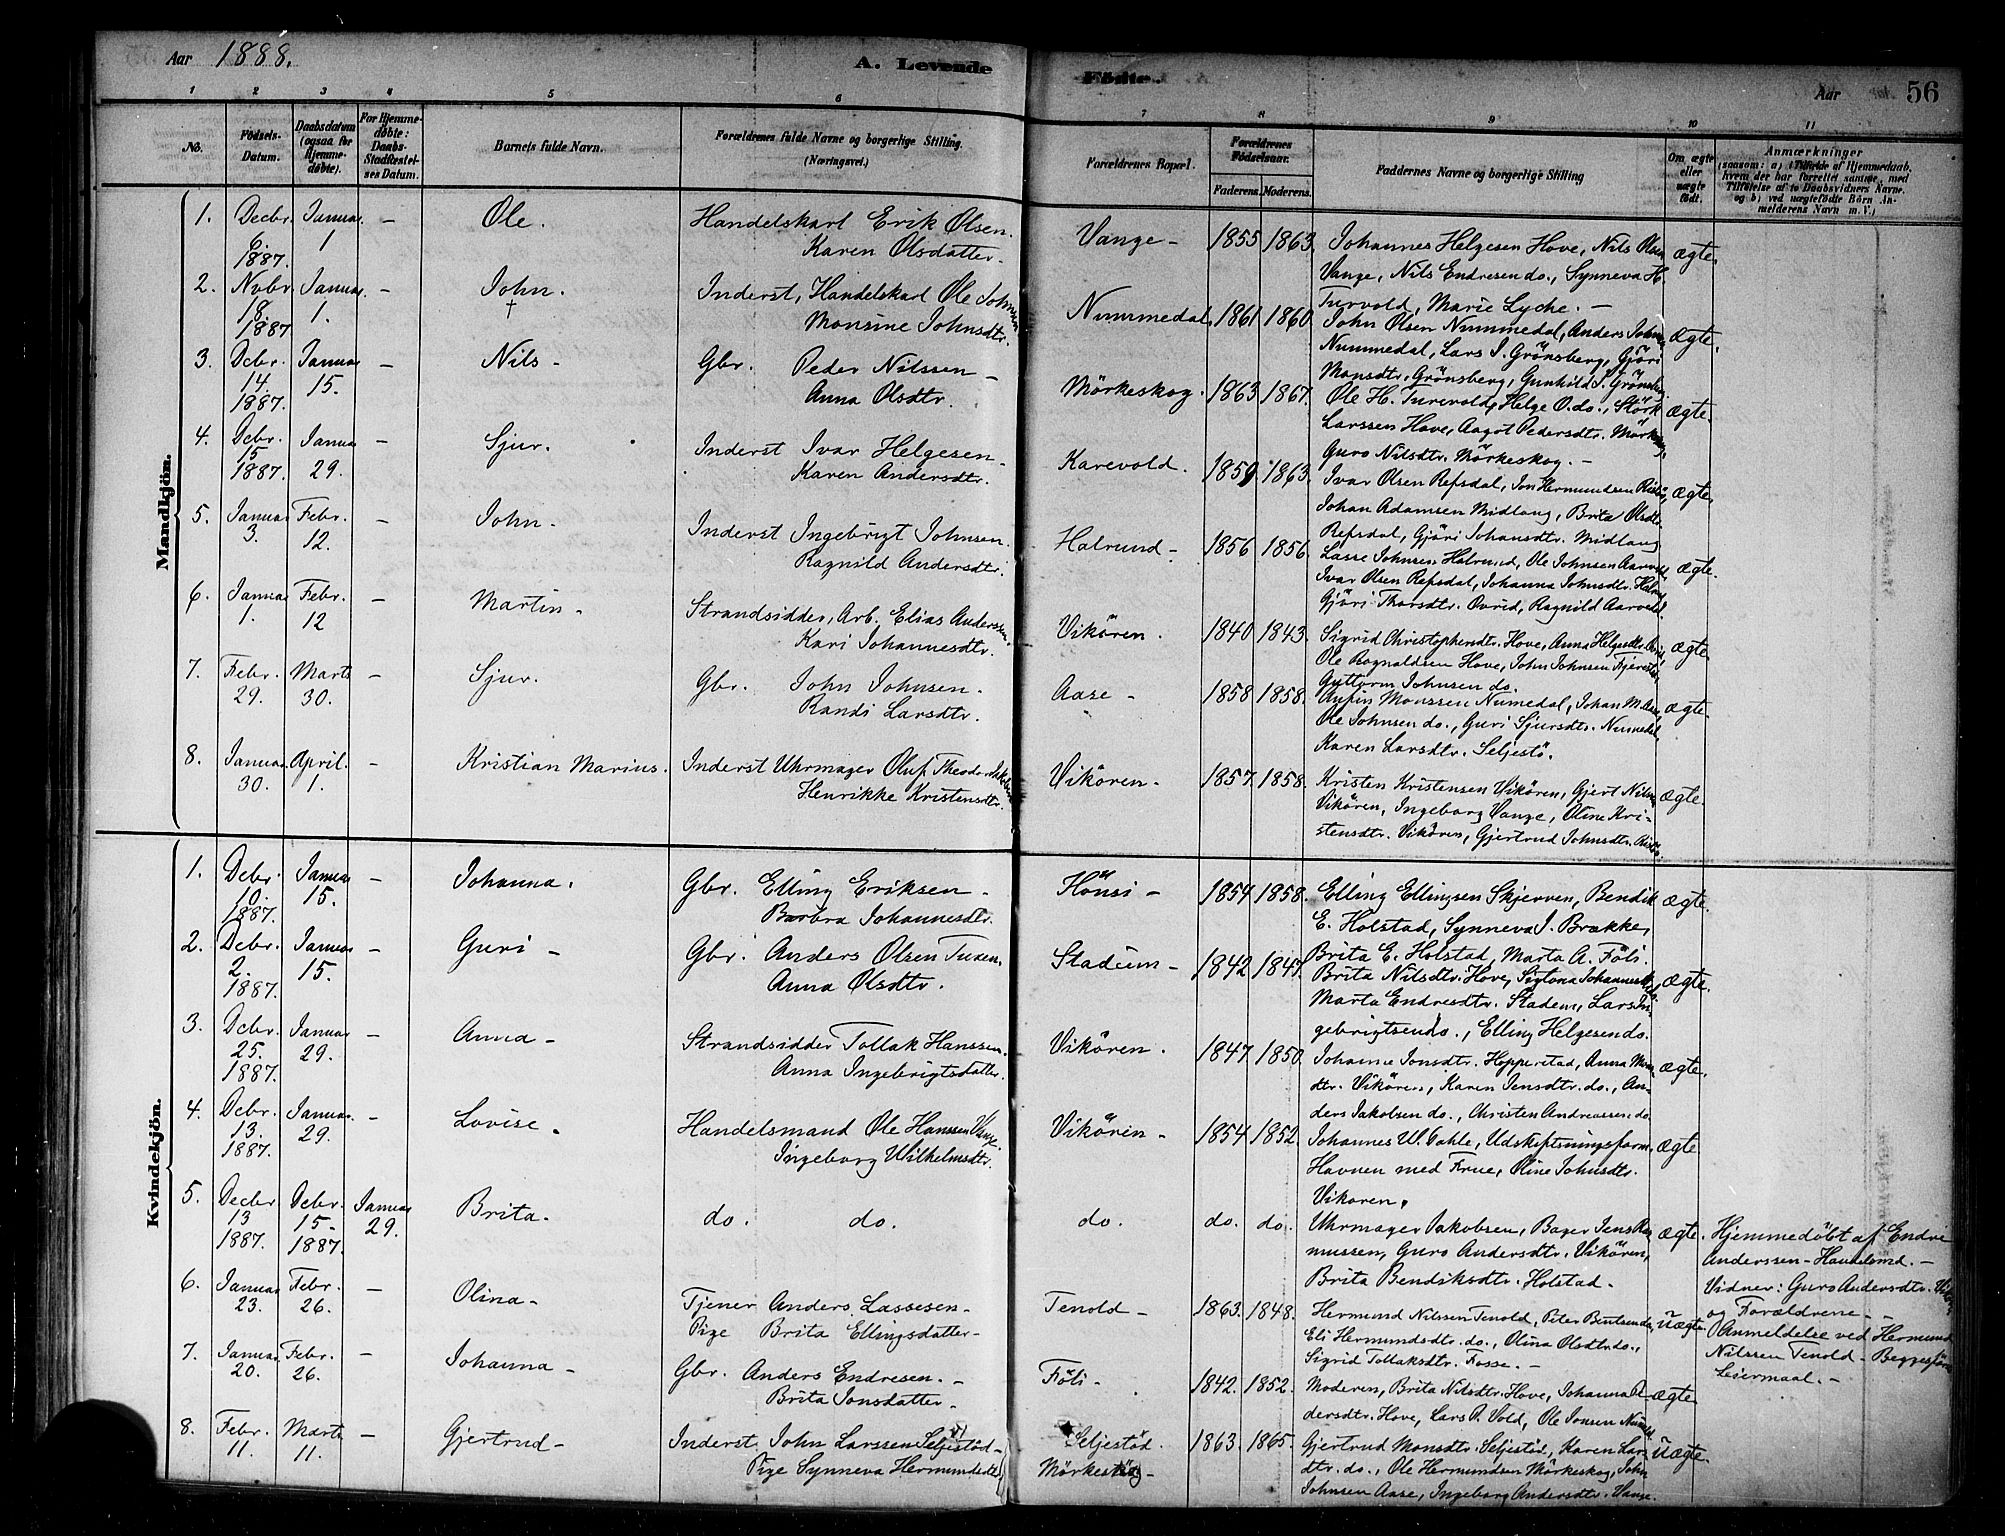 Aar 1888.
A. Levende
Fødte.
Aar
56
1 2 3 4 5 6 7 8 9 10 11
No.
Fødsels-
Datum.
Daabsdatum
(ogsaa for
Hjemme-
døbte).
For Hjemme-
døbte:
Daabs-
Stadfæstel-
ses Datum.
Barnets fulde Navn.
Forældrenes fulde Navne og borgerlige Stilling.
(Næringsvei.)
Forældrenes Bopæl.
Forældrenes
Fødselsaar.
Faderens. Moderens.
Faddernes Navne og borgerlige Stilling
Om ægte
eller
uægte
født.
Anmærkninger
(saasom: a) i Tilfælde af Hjemmedaab,
hvem der har forrettet samme, med
Tilføielse af to Daabsvidners Navne,
og b) ved uægtefødte Børn An-
melderens Navn m. V.)
Mandkjön.
1. Decbr. 6. 1887. Januar 1 - Ole. Handelskarl Erik Olsen.
Karen Olsdatter. Vange - 1855 1863. Johannes Helgesen Hove, Nils Olsen
Vange, Nils Endresen do., Synneva H.
Turvold, Marie Lyche. - ægte.
2. Novbr. 18. 1887 Januar. 1. - John. † Inderst, Handelskarl Ole Johnsen
Monsine Johnsdtr. Nummedal, 1861 1860 John Olsen Nummedal, Anders Johns.
Nummedal, Lars J. Grönsberg, Gjöri
Monsdtr. Grönsberg, Gunhild J. Grönsberg ægte.
3. Dcbr. 14. 1887. Januar 15. - Nils - Gbr. Peder Nilssen -
Anna Olsdtr. Mörkeskog. 1863 1867. Ole H. Turvold, Helge O. do., Störk
Larssen Hove, Aagot Pedersdtr. Mörkeskog,
Guro Nilsdtr. Mörkeskog. - ægte.
4. Dcbr. 15 1887. Januar 29. - Sjur. Inderst Ivar Helgesen -
Karen Andersdtr. Karevold. 1859 1863. Ivar Olsen Refsdal, Jon Hermundsen
Johan Adamsen Midlang, Brita Olsdtr.
Refsdal, Gjöri Johansdtr. Midlang ægte.
5. Januar 3. Febr. 12. - John - Inderst Ingebrigt Johnsen.
Ragnild Andersdtr. Halrund - 1856 1856. Lasse Johnsen Halrund, Ole Johnsen
Ivar Olsen Refsdal, Johanna Johnsdtr.
Gjöri Thorsdtr. Ovrid, Ragnild ægte.
6. Januar 1. Febr. 12 - Martin - Strandsidder, Arb. Elias Anderssen
Kari Johannesdtr. Vikören. 1840 1843. Sigrid Christophersdtr. Hove, Anna Helgesdtr.
Ole Rognaldsen Hove, John Johnsen
Guttorm Johnsen do. ægte.
7. Febr. 29. Marts 30. - Sjur. Gbr. John Johnsen -
Randi Larsdtr. Aase - 1858 1858. Monssen Numedal, Johan M. Aase,
Ole Johnsen do., Guri Sjursdtr. Numedal
Karen Larsdtr. Seljestö. ægte.
8. Januar 30. April. 1. - Kristian Marius. Inderst Uhrmager Oluf Theodor Jakobsen
Henrikke Kristensdtr. Vikören - 1857. 1858. Kristen Kristensen Vikören, Gjert Nilsen
Vikören, Ingeborg Vange, Oline Kri-
stensdtr. Vikören, Gjertrud Johnsdtr. ægte.
Kvindekjön.
1. Dcbr. 10. 1887. Januar 15. - Johanna. Gbr. Elling Eriksen -
Barbra Johannesdtr. Hönsi - 1854 1858. Elling Ellingsen Skjerven, Bendik
E. Holstad, Synneva J. Brække,
Brita E. Holstad, Marta A. Föli. ægte.
2. Dcbr. 2. 1887. Januar 15. - Guri - Gbr. Anders Olsen Tuxen.
Anna Olsdtr. Stadeim - 1842 1847. Brita Nilsdtr. Hove,
Marta Endresdtr. Stadem, Lars In-
gebrigtsen do., Elling Helgesen do. ægte.
3. Dcbr. 25. 1887. Januar 29. - Anna - Strandsidder Tollak Hanssen.
Anna Ingebrigtsdatter. Vikören. 1847. 1850. Johanne Jonsdtr. Hopperstad, Anna Mons-
dtr. Vikören, Karen Jensdtr. do., An-
ders Jakobsen do., Christen Andreassen do. ægte.
4. Dcbr. 13. 1887. Januar. 29. - Lovise. Handelsmand Ole Hanssen Vange.
Ingeborg Wilhelmsdtr. Vikören - 1854 1852. Johannes W. Dahle, Udskiftningsform.
Havnen med Frue, Oline Johnsdtr.
Vikoren. ægte
5. Decbr 13 1887. Dcbr. 15- 1887. Januar 29. Brita. do. do. do. do. do. Uhrmager Jakobsen, Bager Jens Ras-
mussen, Guro Andersdtr. Vikören,
Brita Bendiksdtr. Holstad. ægte. Hjemmedöbt af Endre
Anderssen - Handelsmd. -
Vidner: Guro Andersdtr.
og Forældrene -
6. Januar 23. Febr. 26. - Olina - Tjener Anders Lassesen -
Pige Brita Ellingsdatter - Tenold - 1863. 1848. Hermund Nilssen Tenold, Peter Bentsen do.,
Eli Hermundsdtr. do., Olina Olsdtr. do.,
Sigrid Tollaksdtr. Fosse. - Uægte Anmeldelse ved Hermund
Nilssen Tenold - Begges förste
Leiermaal. -
7. Januar 20. Febr. 26. - Johanna - Gbr. Anders Endresen. -
Brita Jonsdatter - Föli - 1842. 1852. Moderen, Brita Nilsdtr. Hove, Johanna A-
dersdtr. Hove, Lars P. Vold, Ole Jonsen ægte
8. Febr. 11. Marts 11. - Gjertrud - Inderst John Larssen Seljestöd -
Pige Synneva Hermundsdtr. Seljestöd. Mörkeskog - 1863. 1865. Gjertrud Monsdtr. Seljestöd, Karen Lars-
dtr. do., Ole Hermundsen Mörkeskog, John
Johnsen Aase, Ingeborg Andersdtr. Vange. Uægte.